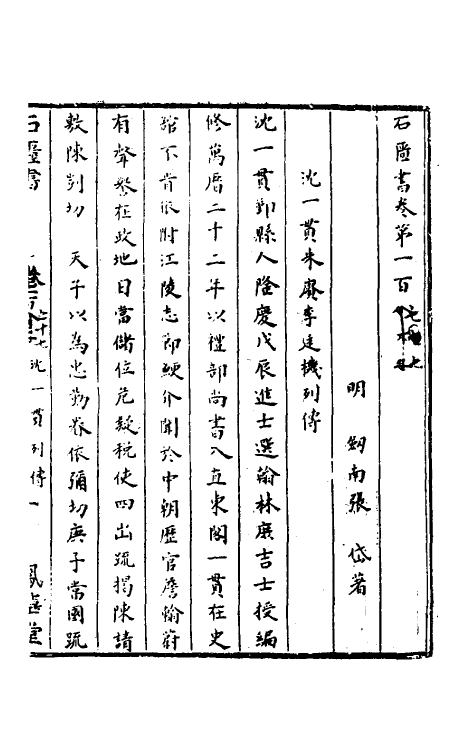 石匱書卷第一百七十七
明 劒南張 岱著
沈一貫朱賡李廷機列傳
沈一貫鄞縣人隆慶戊辰進士選翰林庶吉士授編
修萬曆二十二年以禮部尚書入直東閣一貫在史
舘不肯依附江陵志節鯁介聞於中朝歷官詹翰蔚
有聲譽在政地日當儲位危疑稅使四出疏揭陳請
敷陳剴切 天子以為忠勤眷依彌切庚子當國疏
石匱書 卷一百七十七 沈一貫列傳 一 鳳嬉堂